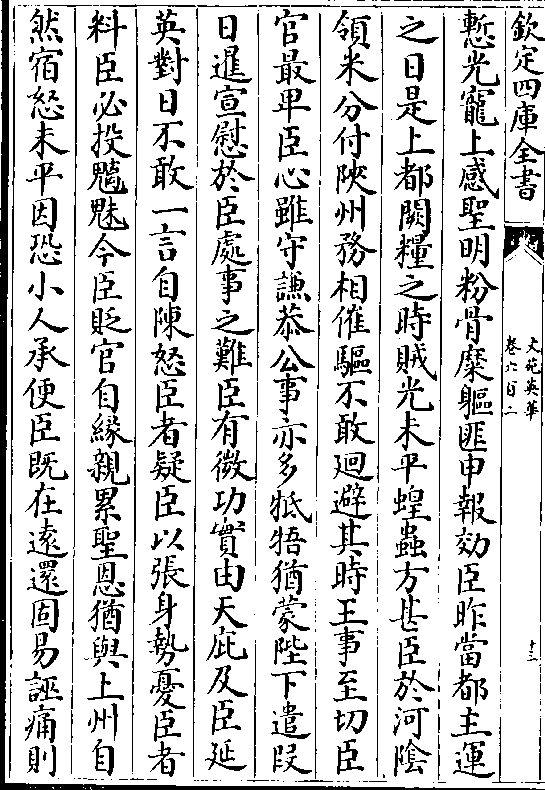 欽定四庫全書
文苑英華
卷六百二
十三
慙光寵上感聖明粉骨糜軀匪申報効臣昨當都主運
之日是上都闕糧之時賊光未平蝗蟲方甚臣於河陰
領米分付陝州務相催驅不敢迴避其時王事至切臣
官最卑臣心雖守謙恭公事亦多牴牾猶蒙陛下遣段
日暹宣慰於臣處事之難臣有微功實由天庇及臣延
英對日不敢一言自陳怒臣者疑臣以張身勢憂臣者
料臣必投魑魅今臣貶官自緣親累聖恩猶與上州自
然宿怒未平因恐小人承便臣既在遠還固易誣痛則